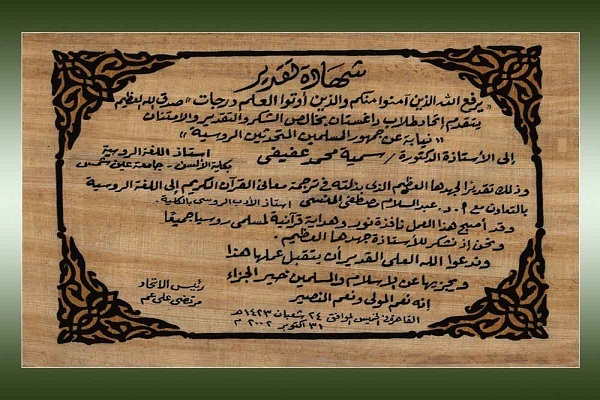 شهادة تقدير
"يرفع الله الذين آمنوا منكم والذين أوتوا العلم درجات" صدق الله العظيم
يتقدم اتحاد طلاب داغستان بخالص الشكر والتقدير والامتنان
"نيابة عن جمهور المسلمين المتحدثين الروسية"
إلى الأستاذة الدكتورة / سمية محمد عفيفي
أستاذ اللغة الروسية
بكلية الألسن - جامعة عين شمس
وذلك تقديرا لجهدها العظيم الذي بذلته في ترجمة معاني القرآن الكريم إلى اللغة الروسية
بالتعاون مع أ. د. عبد السلام مصطفى المنسي أستاذ الأدب الروسي بالكلية.
وقد أصبح هذا العمل نافذة نور وهداية قرآنية لمسلمي روسيا جميعا
ونحن إذ نشكر للأستاذة جهدها العظيم.
وندعوا الله العلي القدير أن يتقبل عملها هذا
ويجزيها عن الإسلام والمسلمين خير الجزاء
إنه نعم المولى ونعم النصير
رئيس الاتحاد
مرتضى علي عم
القاهرة في الخميس الموافق ٢٤ شعبان ١٤٢٣ هـ
٣١ أكتوبر ٢٠٠٢ م